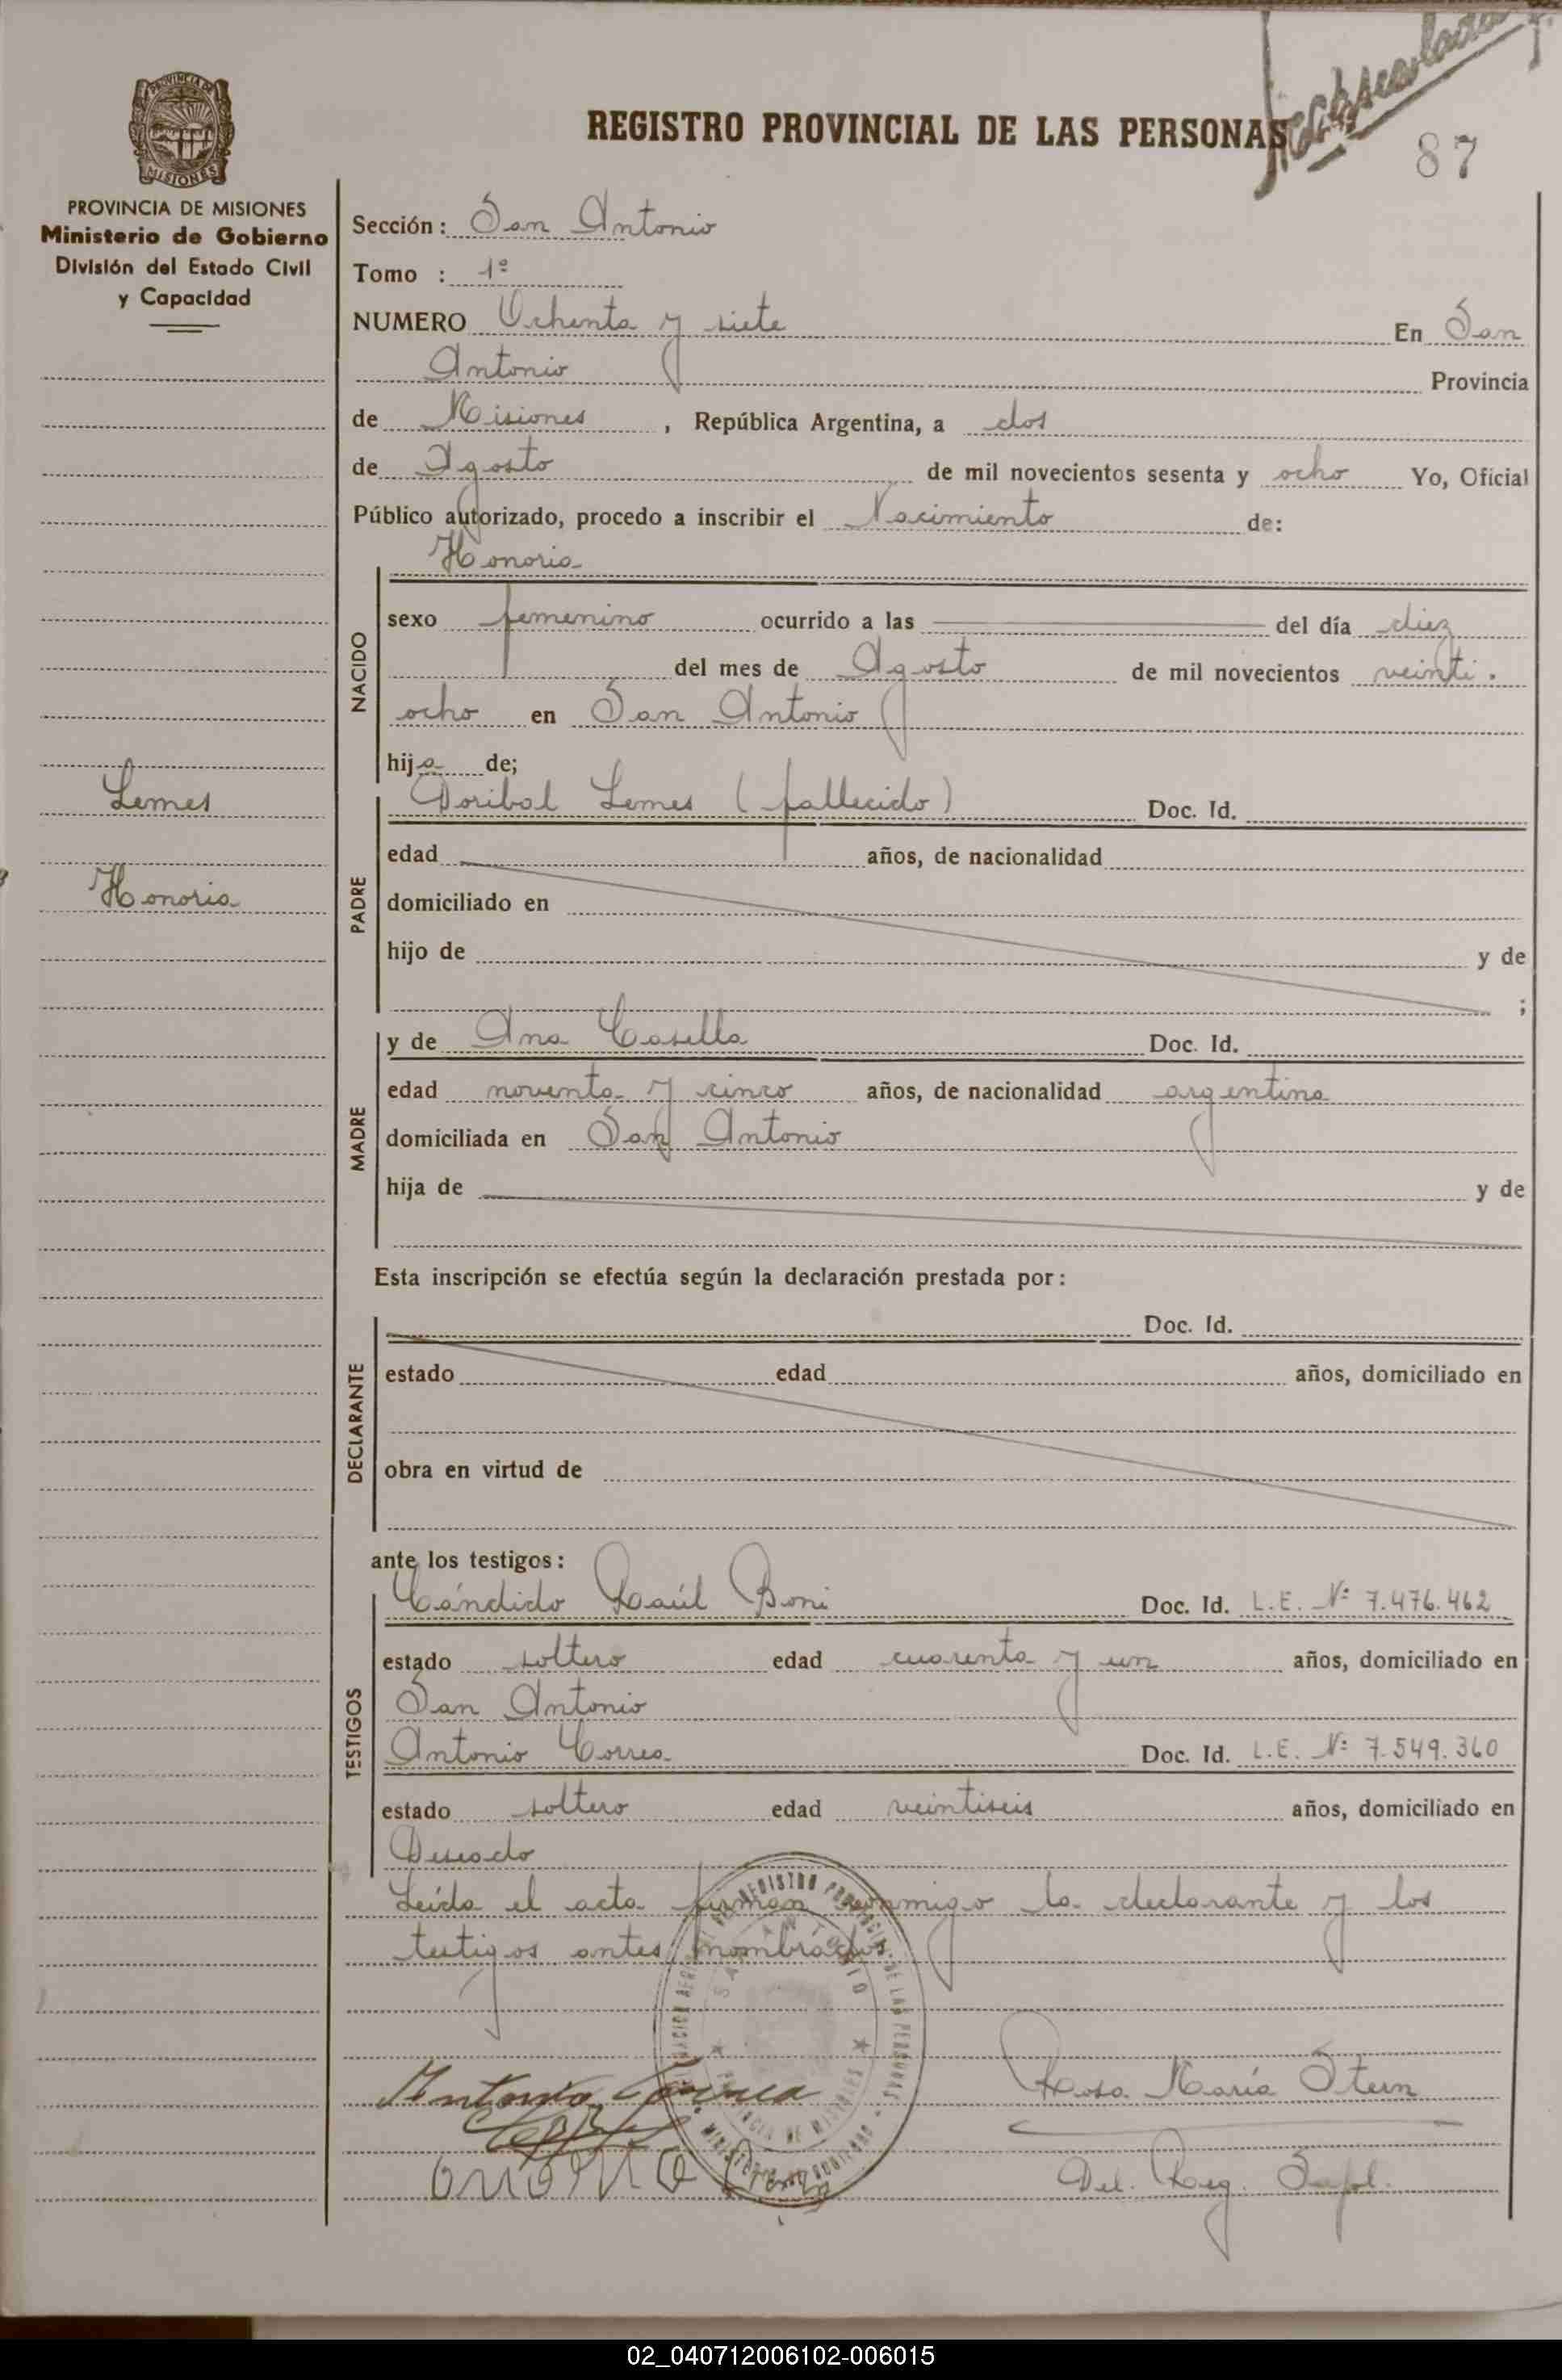 REGISTRO PROVINCIAL DE LAS PERSONAS
87
PROVINCIA DE MISIONES
PROVINCIA DE MISIONES
Ministerio de Gobierno
División del Estado Civil
y Capacidad
Sección: San Antonio
Tomo : 1º
NUMERO Ochenta y siete En San
Antonio Provincia
de Misiones, República Argentina, a dos
de Agosto de mil novecientos sesenta y ocho Yo, Oficial
Público autorizado, procedo a inscribir el Nacimiento de:
Honoria
NACIDO
sexo femenino ocurrido a las del día diez
del mes de Agosto de mil novecientos veinti.
ocho en San Antonio
hija de;
Lemes
Honoria
PADRE
Doribal Lemes (fallecido) Doc. Id.
edad años, de nacionalidad
domiciliado en
hijo de y de
;
MADRE
y de Ana Casella Doc. Id.
edad noventa y cinco años, de nacionalidad argentina
domiciliada en San Antonio
hija de y de
Esta inscripción se efectúa según la declaración prestada por:
DECLARANTE
Doc. Id.
estado edad años, domiciliado en
obra en virtud de
ante los testigos:
TESTIGOS
Cándido Raúl Boni Doc. Id. L.E. Nº 7.476.462
estado soltero edad cuarenta y un años, domiciliado en
San Antonio
Antonio Correa Doc. Id. L.E. Nº 7.549.360
estado soltero edad veintiseis años, domiciliado en
Deseado
Leída el acta firman conmigo la declarante y los
testigos antes nombrados.
REGISTRO PROVINCIAL DE LAS PERSONAS
SAN ANTONIO
PROVINCIA DE MISIONES
MINISTERIO DE GOBIERNO
Antonio Correa
Rosa María Stern
Del. Reg. Supl.
02_040712006102-006015